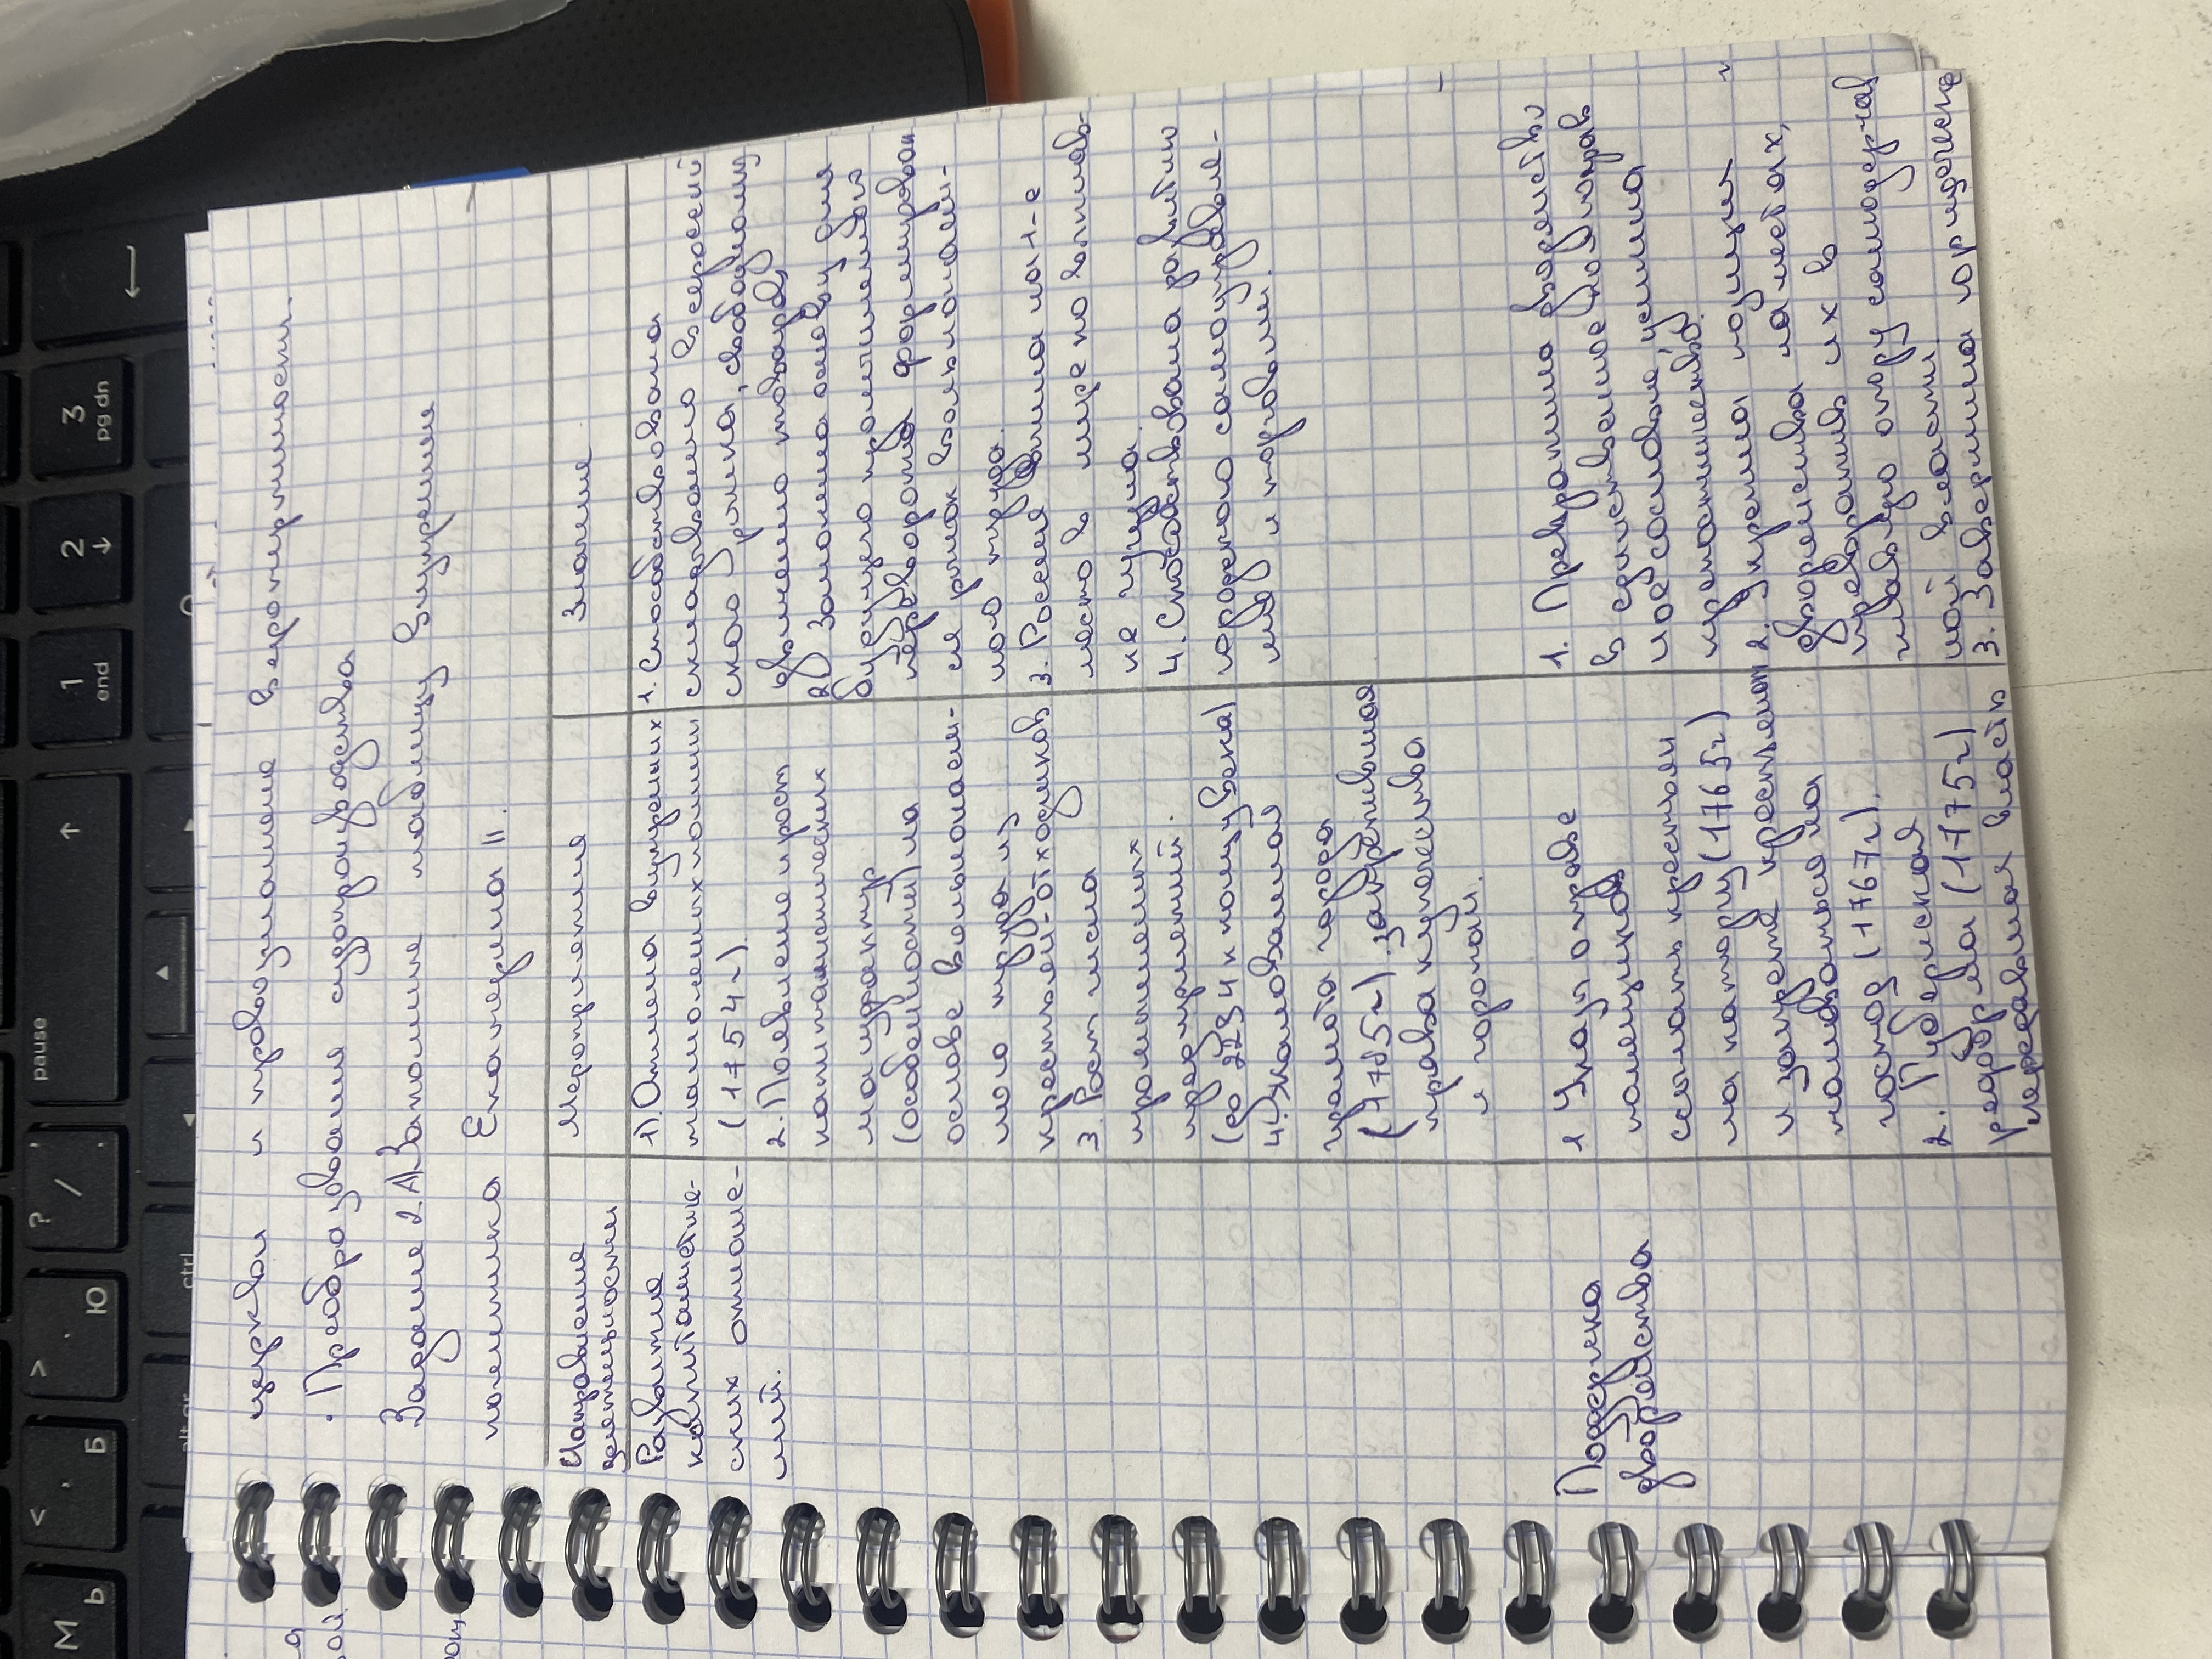 церкви и провозглашение веротерпимости.
. Преобразование судопроизводства
Задание 2. А) Заполните таблицу Внутренняя
политика Екатерина II.
Направление
деятельности
Мероприятия
Значение
Развитие
капиталистиче-
ских отноше-
ний.
1) Отмена внутренних
таможенных пошлин
(1754 г)
2. Появление и рост
капиталистических
мануфактур
(особенность) на
основе вольнонаем-
ного труда из
крестьян-отходников
3. Рост числа
промышленных
предприятий.
(до 2294 к концу века)
4. Жалованная
грамота городам
(1785 г). закрепившая
права купечества
и горожан.
1. Способствовала
складыванию всероссий
ского рынка, свободному
движению товаров,
2) Заложена основу для
будущего промышленного
переворота, формирован
ся рынок вольнонаем-
ного труда.
3. Россия вышла на 1-е
место в мире по выплав-
ке чугуна.
4. Способствовала развитию
городского самоуправле-
ния и торговли.
Поддержка
дворянства
1 Указ о праве
помещиков
ссылать крестьян
на каторгу (1765 г)
и запрете крестьянам
жаловаться на
господ (1767 г).
2. Губернская
реформа (1775 г)
передавшая власть
1. Превратила дворянство
в единственное полноправ
ное сословие, усилила
крепостничество.
2. Укрепила позиции
дворянства на местах,
превратив их в
главную опору самодержав
ной власти
3. Завершила юридическое
pause
end
pg dn
1
2
3
ctrl
alt gr
М
Ь
Б
Ю